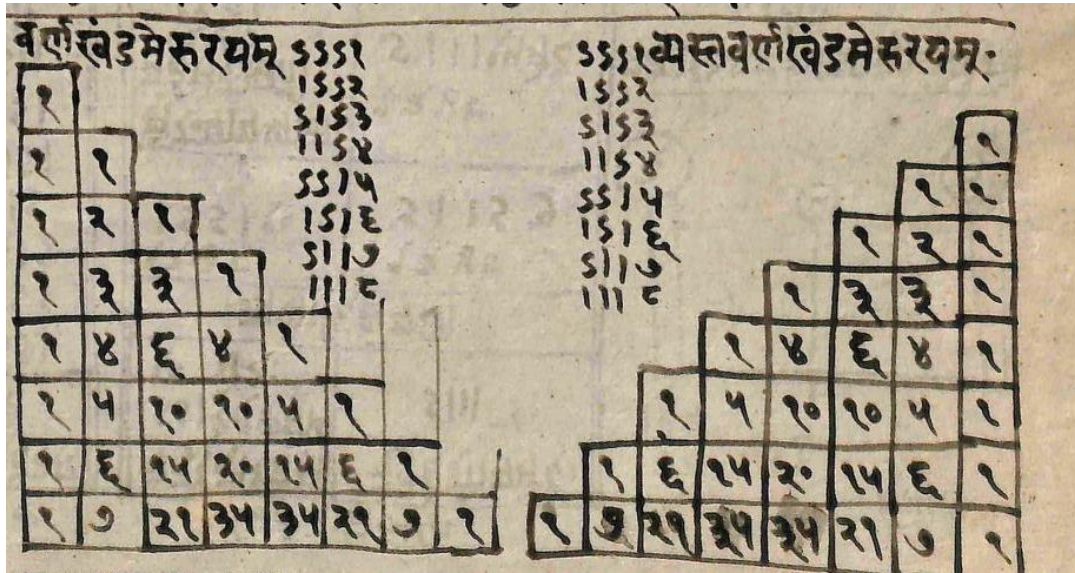 वर्णखंडमेरुरयम्
ऽऽऽ१
।ऽऽ२
ऽ।ऽ३
।।ऽ४
ऽऽ।५
।ऽ।६
ऽ।।७
।।।८
१
१ १
१ २ १
१ ३ ३ १
१ ४ ६ ४ १
१ ५ १० १० ५ १
१ ६ १५ २० १५ ६ १
१ ७ २१ ३५ ३५ २१ ७ १
व्यस्तवर्णखंडमेरुरयम्
ऽऽऽ१
।ऽऽ२
ऽ।ऽ३
।।ऽ४
ऽऽ।५
।ऽ।६
ऽ।।७
।।।८
१
१ १
१ २ १
१ ३ ३ १
१ ४ ६ ४ १
१ ५ १० १० ५ १
१ ६ १५ २० १५ ६ १
१ ७ २१ ३५ ३५ २१ ७ १